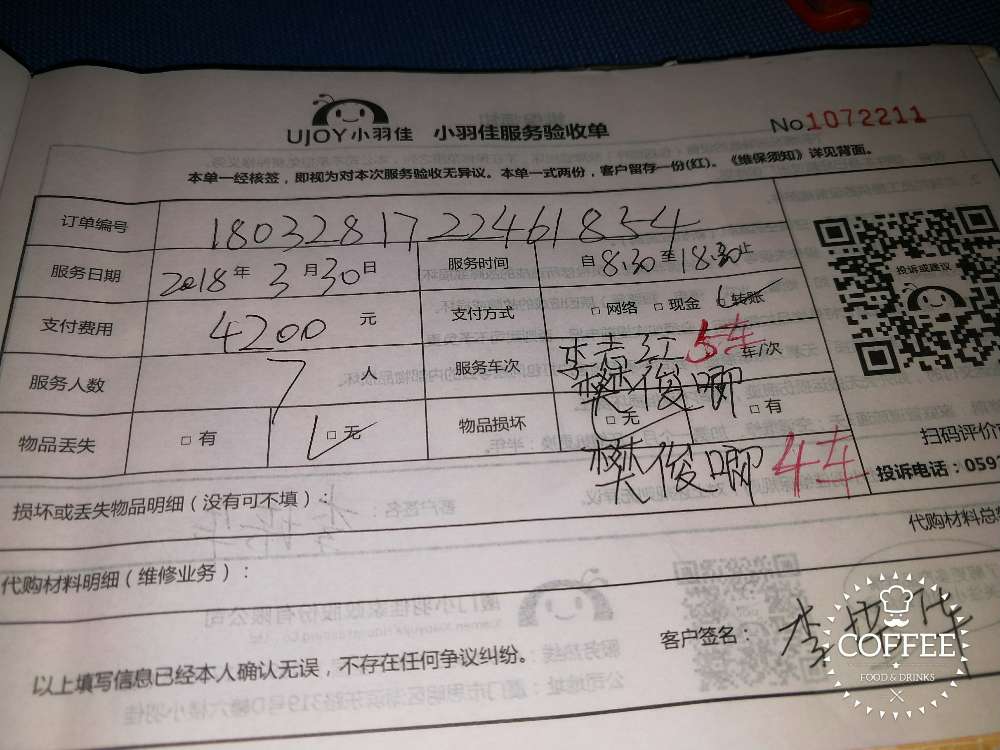 UJOY小羽佳 小羽佳服务验收单 No 1072211
本单一经核签，即视为对本次服务验收无异议。本单一式两份，客户留存一份(红)。《维保须知》详见背面。
订单编号 1803281722461834
服务日期 2018年3月30日 服务时间 自8:30至18:30止
支付费用 4200元 支付方式 □网络 □现金 □转账
服务人数 7人 服务车次 李 红 5车 车/次
樊俊唧
物品丢失 □有 □无 物品损坏 □无 □有
樊俊唧 4车
投诉或建议
扫码评价
投诉电话：059
损坏或丢失物品明细（没有可不填）：
代购材料总
代购材料明细（维修业务）：
客户签名：李 华
以上填写信息已经本人确认无误，不存在任何争议纠纷。
COFFEE
FOOD & DRINKS